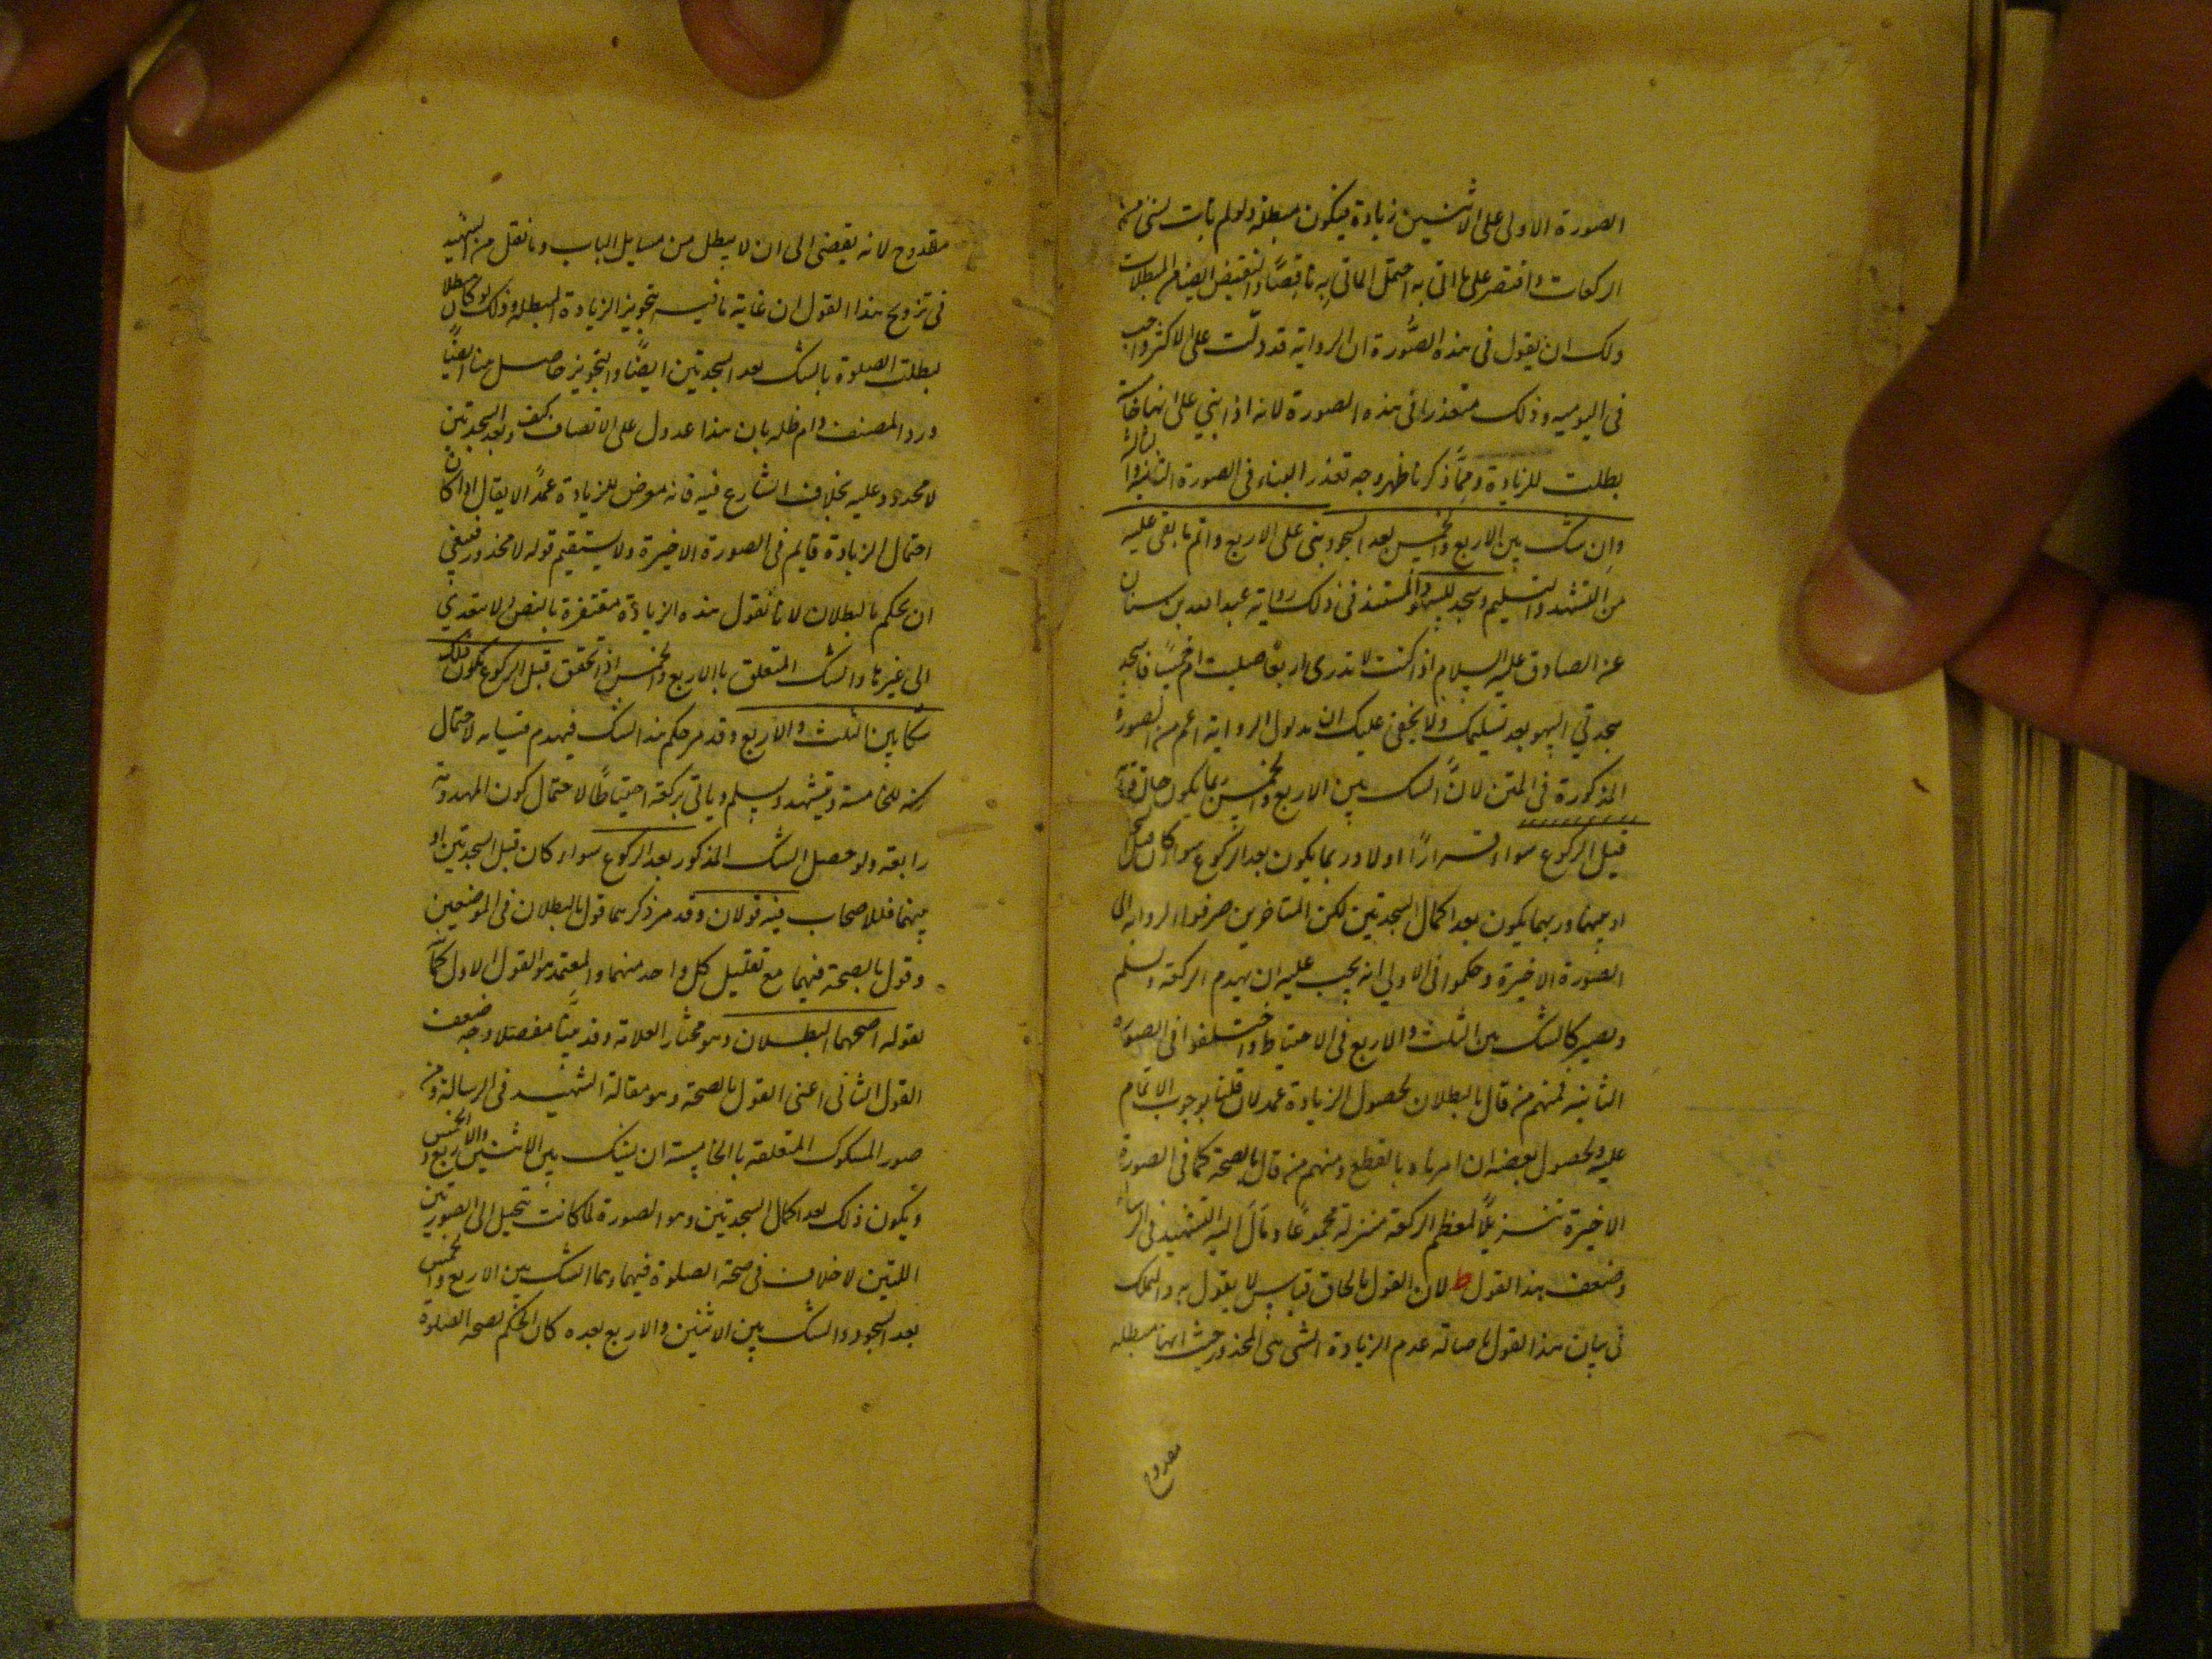 الصورة الاولى على الاثنين زيادة فيكون مبطلة ولو لم يأت بشئ من
الركعات واقتصر على ما اتى به احتمل الماتي به ناقصًا والنقيض ايضا من المبطلات
ولك ان يقول فى هذه الصُّورة ان الرواية قد دلّت على الاكثر واجب
فى اليوميه وذلك متعذر فى هذه الصورة لانه اذا بني على انها خامسة
بطلت للزيادة وممَّا ذكرنا ظهر وجه تعذر البناء فى الصورة الثانية
وان شك بين الاربع والخمس بعد السجود بنى على الاربع واتم ما بقى عليه
من التشهد والتسليم وسجد للسهو والمستند فى ذلك رواية عبد الله بن سنان
عن الصادق عليه السلام اذا كنت لا تدرى اربعًا صليت ام خمسًا فاسجد
سجدتي السهو بعد تسليمك ولا يخفى عليك ان مدلول الرواية اعم من الصورة
المذكورة فى المتن لانَّ الشك بين الاربع والخمس ربما يكون
قبل الركوع سواء اولا وربما يكون بعد الركوع سواء كان قبل
او بينهما وربما يكون بعد اكمال السجدتين لكن المتاخرين صرفوا الرواية الى
الصورة الاخيرة وحكموا فى الاولي انه يجب عليه ان يهدم الركعة ويسلم
ويصير كالشك بين الثلث والاربع فى الاحتياط واختلفوا فى الصورة
الثانية فمنهم من قال بالبطلان لحصول الزيادة عمد لان قلنا بوجوب الاتمام
عليه ولحصول نقصان ان امرناه بالقطع ومنهم من قال بالصحة كما فى الصورة
الاخيرة تنزيلًا لمعظم الركعة منزلة مجموعها ومال اليه الشهيد فى الرسالة
وضعف هذا القول ط لان القول بالحاق قياس لا يقول به والتمسك
فى بيان هذا القول باصالة عدم الزيادة التى هى المحذور حيث انها مبطله
مقدوح
مقدوح لانه يفضى الى ان لا يبطل من مسايل الباب وما نقل من الشهيد
فى تزويج هذا القول ان غاية ما فيه تجويز الزيادة المبطلة وذلك لو كان مبطلا
لبطلت الصلوة بالشك بعد السجدتين ايضًا والتجويز حاصل هنا ايضًا
ورد المصنف دام ظله بان هذا عدول على الانصاف كيف وبعد السجدتين
لا محذور عليه بخلاف الشارع فيه فانه معرض للزيادة عمدًا لا يقال اذا كان
احتمال الزيادة قايم فى الصورة الاخيرة ولا يستقيم قوله لا محذور فينبغى
ان يحكم بالبطلان لانا نقول هذه الزيادة مغتفرة بالنص ولا يتعدى
الى غيرها والشك المتعلق بالاربع والخمس اذا تحقق قبل الركوع يكون ذلك
شكا بين الثلث والاربع وقد مر حكم هذا الشك فيهدم قيامه لاحتمال
كونه للخامسة ويتشهد ويسلم وياتي بركعة احتياطًا لاحتمال كون المهدومة
رابعة ولو حصل الشك المذكور بعد الركوع سواء كان قبل السجدتين او
بينهما فللاصحاب فيه قولان وقد مر ذكرهما قول بالبطلان فى الموضعين
وقول بالصحة فيهما مع تعليل كل واحد منهما والمعتمد هو القول الاول
بقوله اصحهما البطلان وهو مختار العلامة وقد بينا مفصلا وجه ضعف
القول الثانى اعنى القول بالصحة وهو مقالة الشهيد فى الرسالة ومن
صور الشكوك المتعلقة بالخامسة ان يشك بين الاثنين والاربع والخمس
ويكون ذلك بعد اكمال السجدتين وهو الصورة لما كانت تنحيل الى الصورتين
اللتين لا خلاف فى صحة الصلوة فيهما وهما الشك بين الاربع والخمس
بعد السجود والشك بين الاثنين والاربع بعده كان الحكم بصحة الصلوة